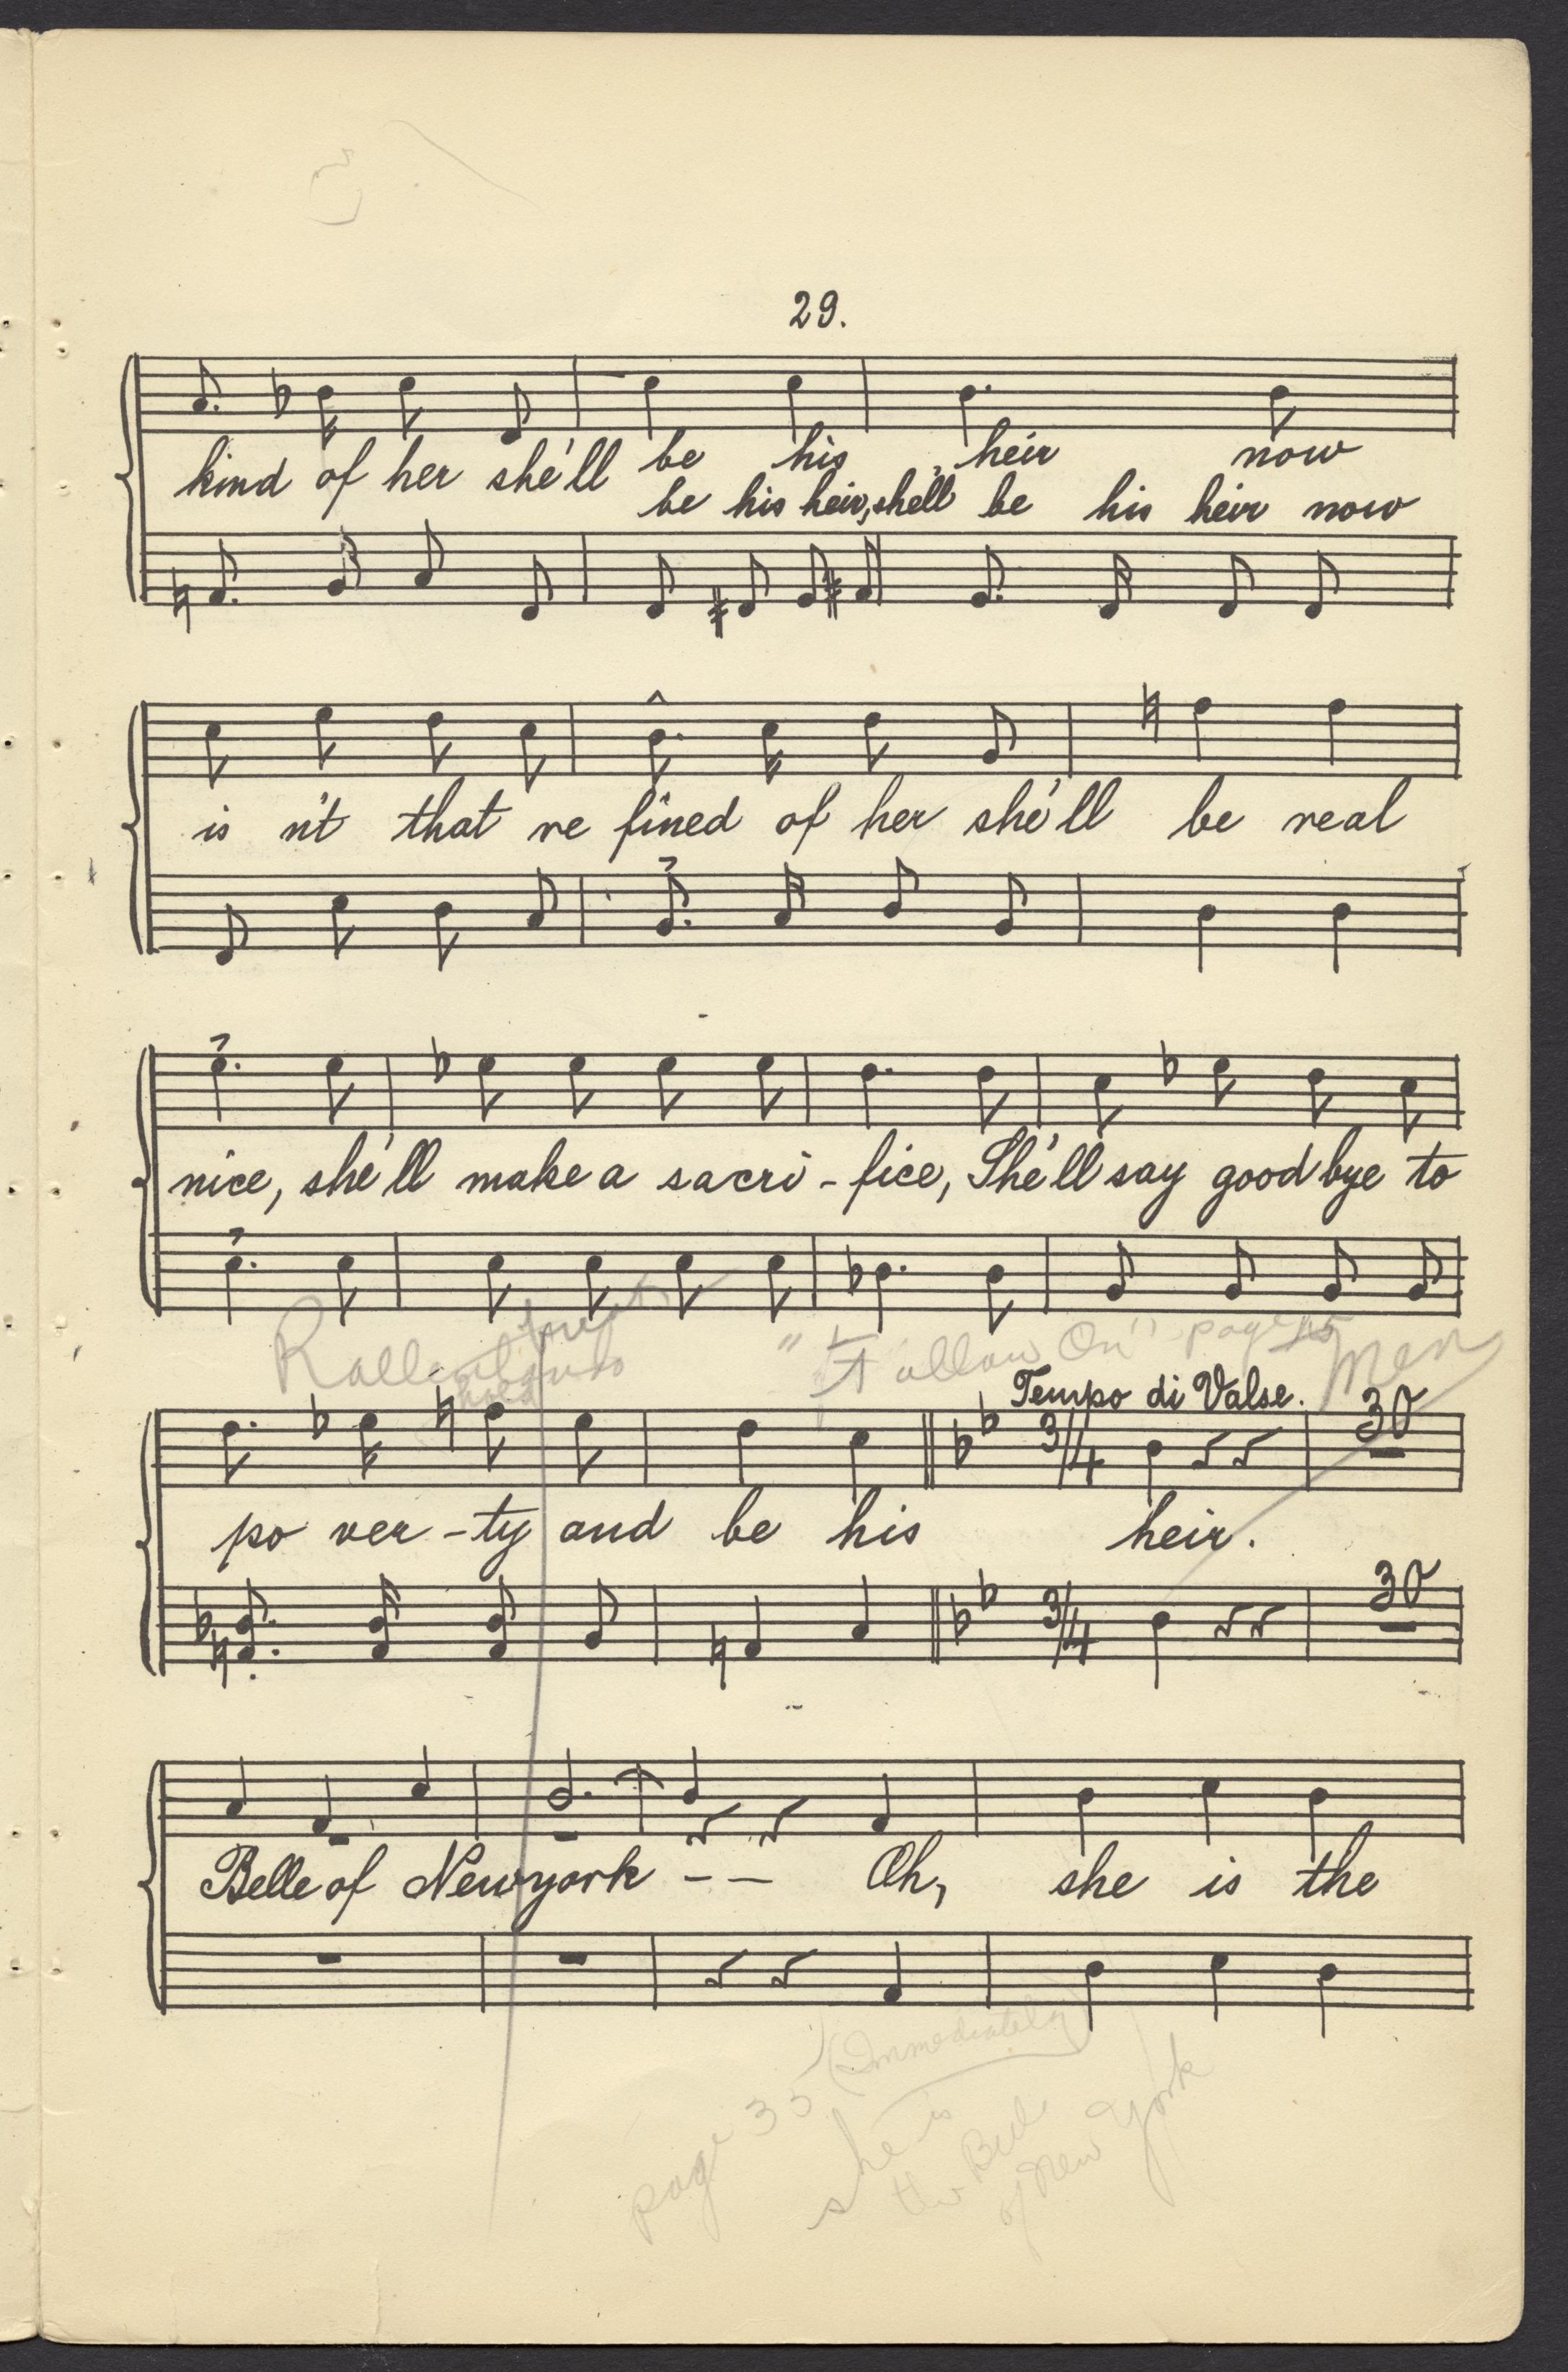 29.
kind of her she'll be his heir now
be his heir, she'll be his heir now
is n't that re fined of her she'll be real
nice, she'll make a sacri - fice, She'll say good bye to
Rallentando
"Follow On" page
Men
Tempo di Valse.
3/4 30
po ver - ty and be his heir.
3/4 30
Belle of New york - - Oh, she is the
page 35 (Immediately)
she is
the Bell
of New York